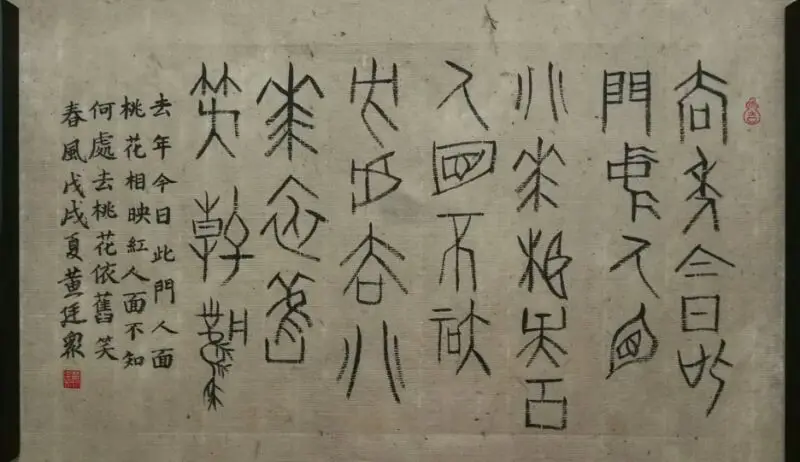 去年今日此
門人面
桃花相映紅
人面不知
何處去桃
花依舊
笑春風
去年今日此門人面
桃花相映紅人面不知
何處去桃花依舊笑
春風戊戌夏黃廷